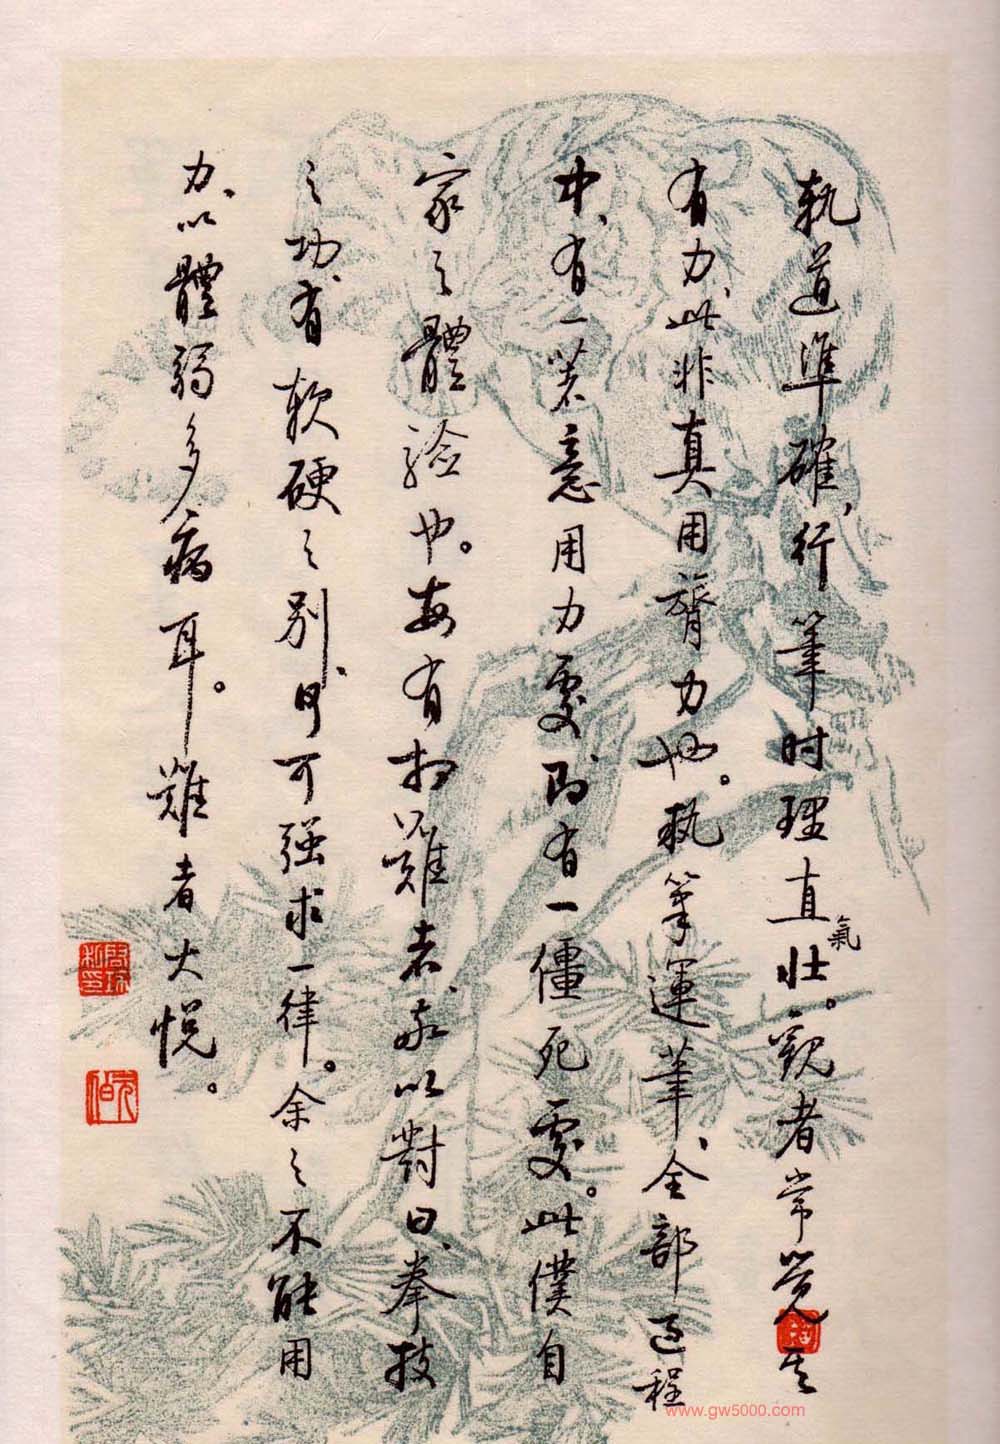 軌道準確，行筆时理直氣壯。觀者常覺其
有力，此非真用膂力也。執筆運筆，全部过程
中，有一着意用力處，即有一僵死處。此僕自
家之體验也。每有相難者，敬以對曰，拳技
之功，有软硬之别，何可强求一律。余之不能用
力，以體弱多病耳。難者大悦。
www.gw5000.com
元白